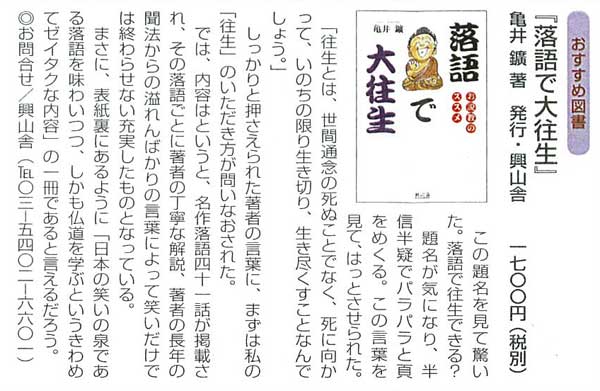 おすすめ図書
『落語で大往生』
亀井 鑛 著　発行・興山舎　一七〇〇円（税別）
亀井 鑛
落語で大往生
お説教のススメ
興山舎
この題名を見て驚い
た。落語で往生できる？
題名が気になり、半
信半疑でパラパラと頁
をめくる。この言葉を
見て、はっとさせられた。
「往生とは、世間通念の死ぬことでなく、死に向か
って、いのちの限り生き切り、生き尽くすことなんで
しょう。」
しっかりと押さえられた著者の言葉に、まずは私の
「往生」のいただき方が問いなおされた。
では、内容はというと、名作落語四十一話が掲載さ
れ、その落語ごとに著者の丁寧な解説、著者の長年の
聞法からの溢れんばかりの言葉によって笑いだけで
は終わらせない充実したものとなっている。
まさに、表紙裏にあるように「日本の笑いの泉であ
る落語を味わいつつ、しかも仏道を学ぶというきわめ
てゼイタクな内容」の一冊であると言えるだろう。
◎お問合せ／興山舎（℡〇三―五四〇二―六六〇一）